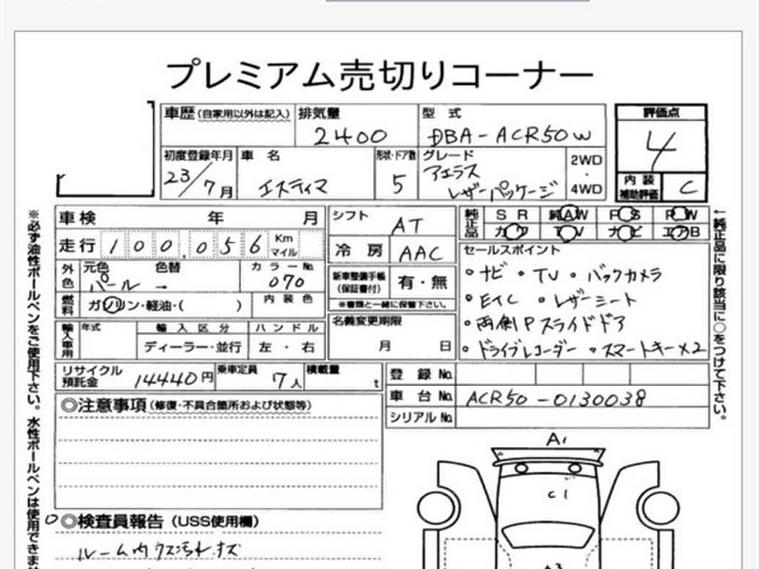 プレミアム売切りコーナー
車歴 (自家用以外は記入) 排気量 型式 評価点
2400 DBA-ACR50W 4
初度登録年月 車名 形状・ドア数 グレード 2WD
23/7月 エスティマ 5 アエラス レザーパッケージ 4WD
内装補助評価 C
車検 年 月 シフト AT
純正品 SR 純AW PS PW
カワ TV ナビ エアB
走行 100,056 Km マイル 冷房 AAC
セールスポイント
・ナビ・TV・バックカメラ
・ETC・レザーシート
・両側Pスライドドア
・ドライブレコーダー・スマートキー×2
外色 元色 色替 カラーNo.
パール → 070
新車整備手帳(保証書付) 有・無
※書類と一緒に保管下さい。
燃料 ガソリン・軽油・( ) 内装色
名義変更期限
月 日
輸入車用 年式 輸入区分 ハンドル
ディーラー・並行 左・右
リサイクル預託金 14440円 乗車定員 7人 積載量 t
登録No.
車台No. ACR50-0130038
シリアルNo.
◎注意事項 (修復・不具合箇所および状態等)
A1
C1
◎検査員報告 (USS使用欄)
ルーム内ウス汚れキズ
※必ず油性ボールペンをご使用下さい。水性ボールペンは使用できま
←純正品に限り該当に○をつけて下さい。